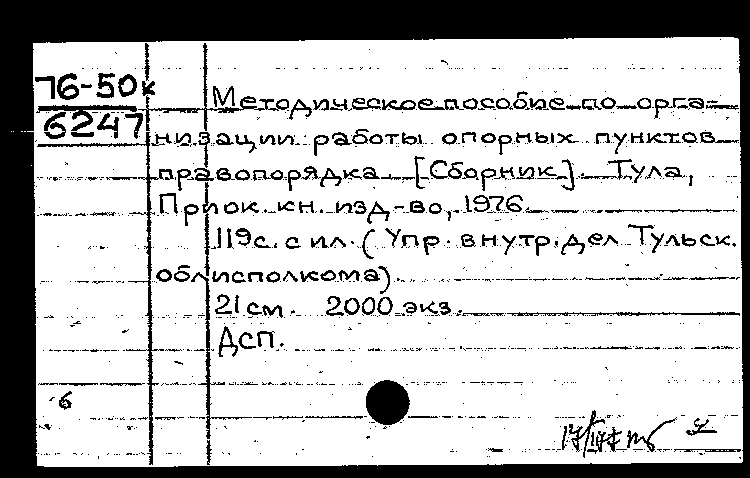 76-50к
6247
Методическое пособие по орга=
низации работы опорных пунктов
правопорядка [Сборник]. Тула,
Приок. кн. изд-во, 1976.
119с. с ил. (Упр. внутр. дел Тульск.
облисполкома).
21 см. 2000 экз.
Дсп.
6